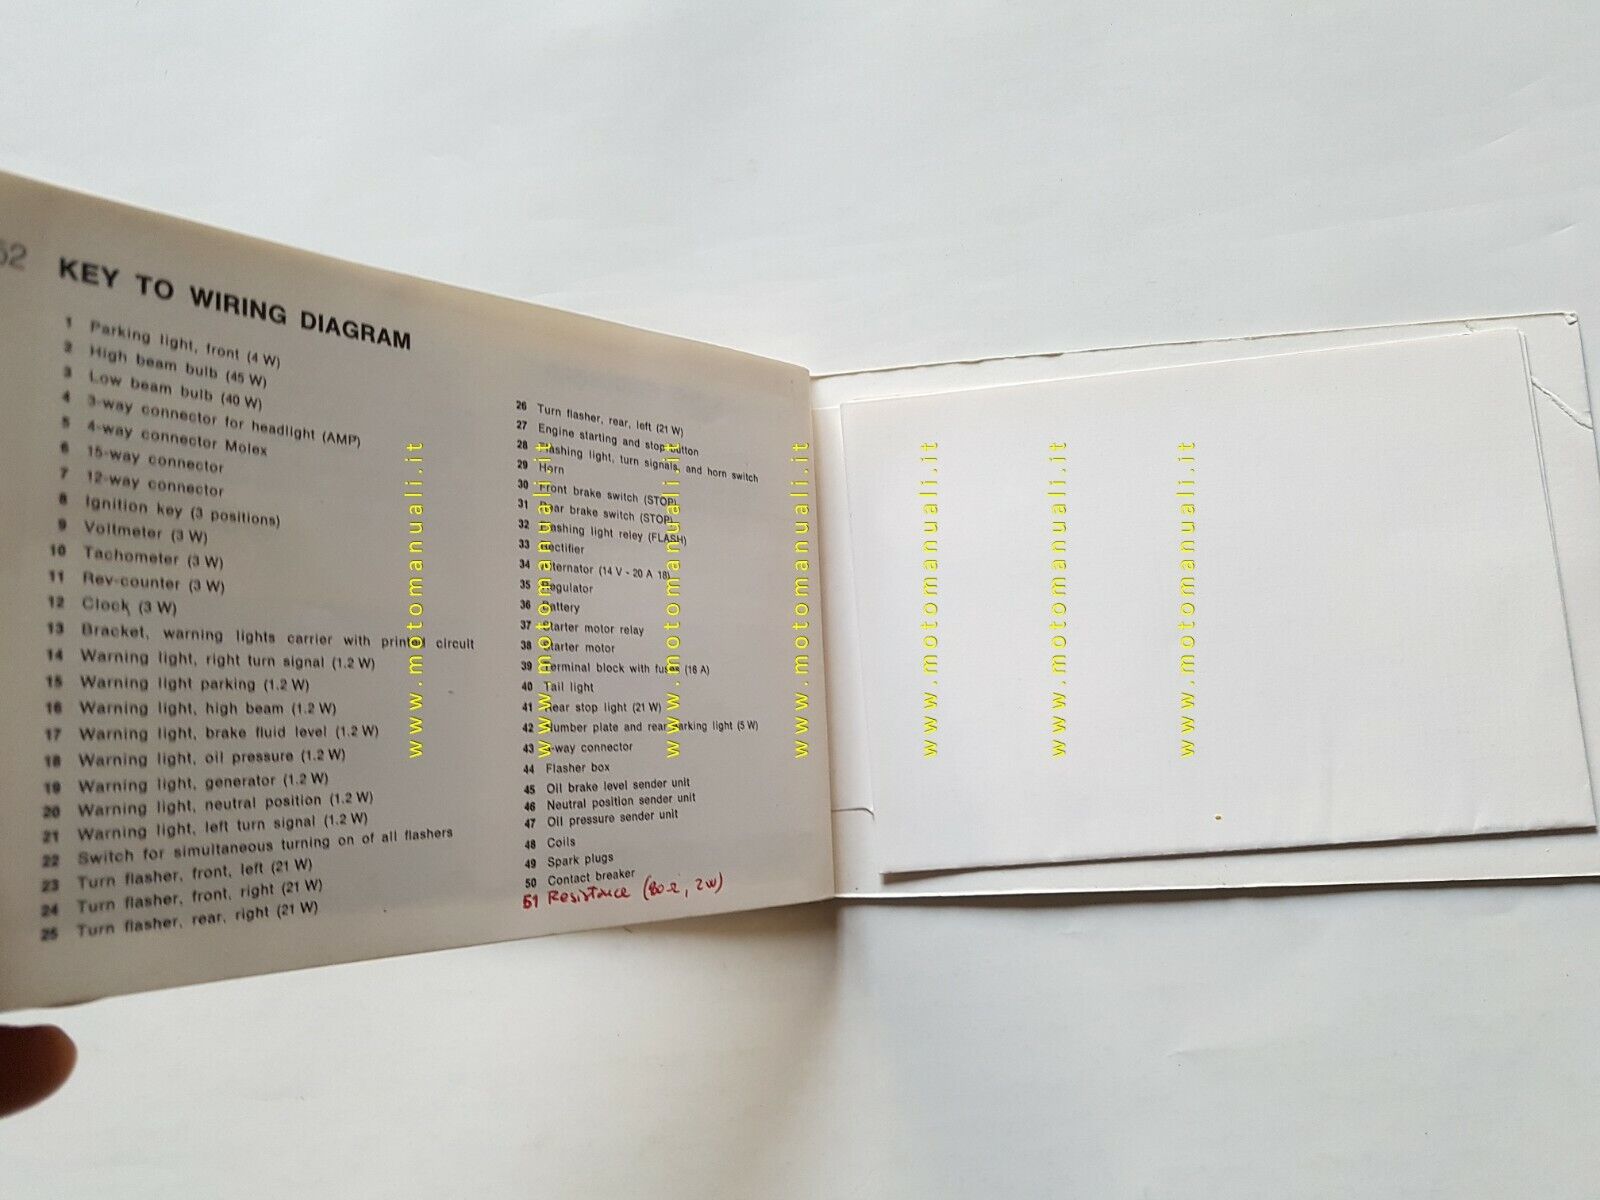 52
KEY TO WIRING DIAGRAM
1 Parking light, front (4 W)
2 High beam bulb (45 W)
3 Low beam bulb (40 W)
4 3-way connector for headlight (AMP)
5 4-way connector Molex
6 15-way connector
7 12-way connector
8 Ignition key (3 positions)
9 Voltmeter (3 W)
10 Tachometer (3 W)
11 Rev-counter (3 W)
12 Clock (3 W)
13 Bracket, warning lights carrier with printed circuit
14 Warning light, right turn signal (1.2 W)
15 Warning light parking (1.2 W)
16 Warning light, high beam (1.2 W)
17 Warning light, brake fluid level (1.2 W)
18 Warning light, oil pressure (1.2 W)
19 Warning light, generator (1.2 W)
20 Warning light, neutral position (1.2 W)
21 Warning light, left turn signal (1.2 W)
22 Switch for simultaneous turning on of all flashers
23 Turn flasher, front, left (21 W)
24 Turn flasher, front, right (21 W)
25 Turn flasher, rear, right (21 W)
26 Turn flasher, rear, left (21 W)
27 Engine starting and stop button
28 Flashing light, turn signals, and horn switch
29 Horn
30 Front brake switch (STOP)
31 Rear brake switch (STOP)
32 Flashing light reley (FLASH)
33 Rectifier
34 Alternator (14 V - 20 A 18)
35 Regulator
36 Battery
37 Starter motor relay
38 Starter motor
39 Terminal block with fuses (16 A)
40 Tail light
41 Rear stop light (21 W)
42 Number plate and rear parking light (5 W)
43 -way connector
44 Flasher box
45 Oil brake level sender unit
46 Neutral position sender unit
47 Oil pressure sender unit
48 Coils
49 Spark plugs
50 Contact breaker
51 Resistance (80 Ω, 2W)
www.motomanuali.it
www.motomanuali.it
www.motomanuali.it
www.motomanuali.it
www.motomanuali.it
www.motomanuali.it
www.motomanuali.it